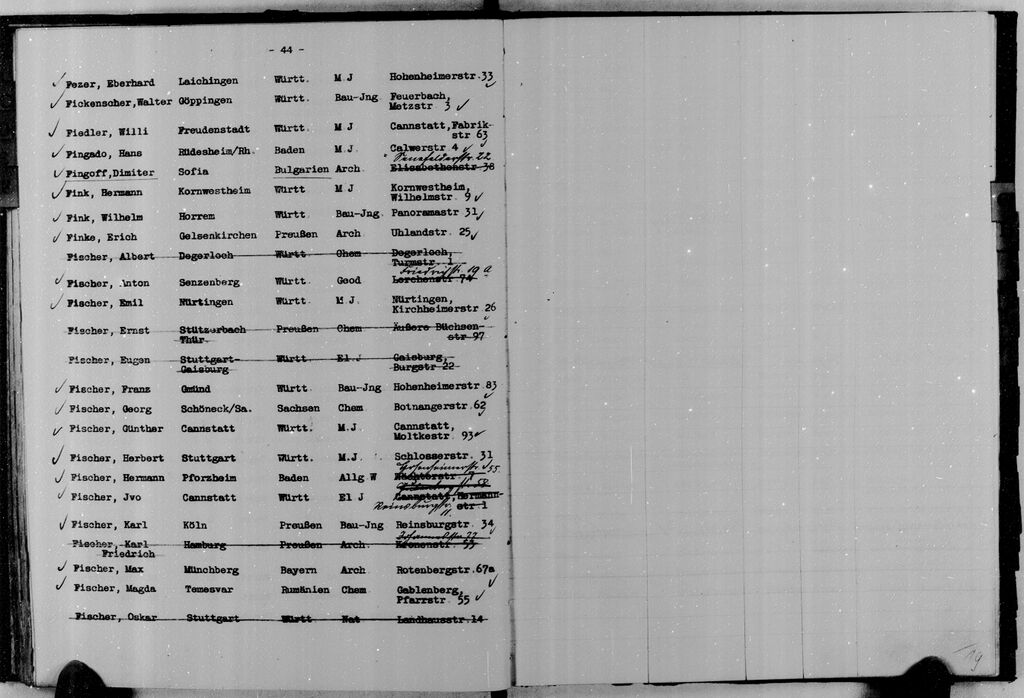 - 44 -
Fezer, Eberhard Laichingen Württ. M J Hohenheimerstr. 33
Fickenscher,Walter Göppingen Württ. Bau-Jng Feuerbach,
Metzstr 3
Fiedler, Willi Freudenstadt Württ. M J Cannstatt,Fabrik-
str 63
Fingado, Hans Rüdesheim/Rh. Baden M J. Calwerstr 4
Senefelderstr. 22
Fingoff,Dimiter Sofia Bulgarien Arch Elisabethenstr 38
Fink, Hermann Kornwestheim Württ M J Kornwestheim,
Wilhelmstr 9
Fink, Wilhelm Horrem Württ. Bau-Jng. Panoramastr 31
Finke, Erich Gelsenkirchen Preußen Arch Uhlandstr. 25
Fischer, Albert Degerloch Württ Chem Degerloch,
Turmstr. 1
Friedrichstr. 19 a
Fischer, Anton Senzenberg Württ. Geod Lerchenstr 74
Fischer, Emil Nürtingen Württ. M J. Nürtingen,
Kirchheimerstr 26
Fischer, Ernst Stützerbach Preußen Chem Äußere Büchsen-
Thür. str 97
Fischer, Eugen Stuttgart- Württ. El J Gaisburg,
Gaisburg Burgstr 22
Fischer, Franz Gmünd Württ. Bau-Jng Hohenheimerstr 83
Fischer, Georg Schöneck/Sa. Sachsen Chem Botnangerstr. 62
Fischer, Günther Cannstatt Württ. M.J. Cannstatt,
Moltkestr. 93
Fischer, Herbert Stuttgart Württ. M.J. Schlosserstr. 31
55.
Fischer, Hermann Pforzheim Baden Allg W Wächterstr. 7
Fischer, Jvo Cannstatt Württ El J Cannstatt, Hermann-
Reinsburgstr. str 1
Fischer, Karl Köln Preußen Bau-Jng Reinsburgstr. 34
Johannesstr. 22
Fischer, Karl Hamburg Preußen Arch. Kronenstr. 53
Friedrich
Fischer, Max Münchberg Bayern Arch Rotenbergstr.67a
Fischer, Magda Temesvar Rumänien Chem Gablenberg,
Pfarrstr. 55
Fischer, Oskar Stuttgart Württ Nat Landhausstr.14
19